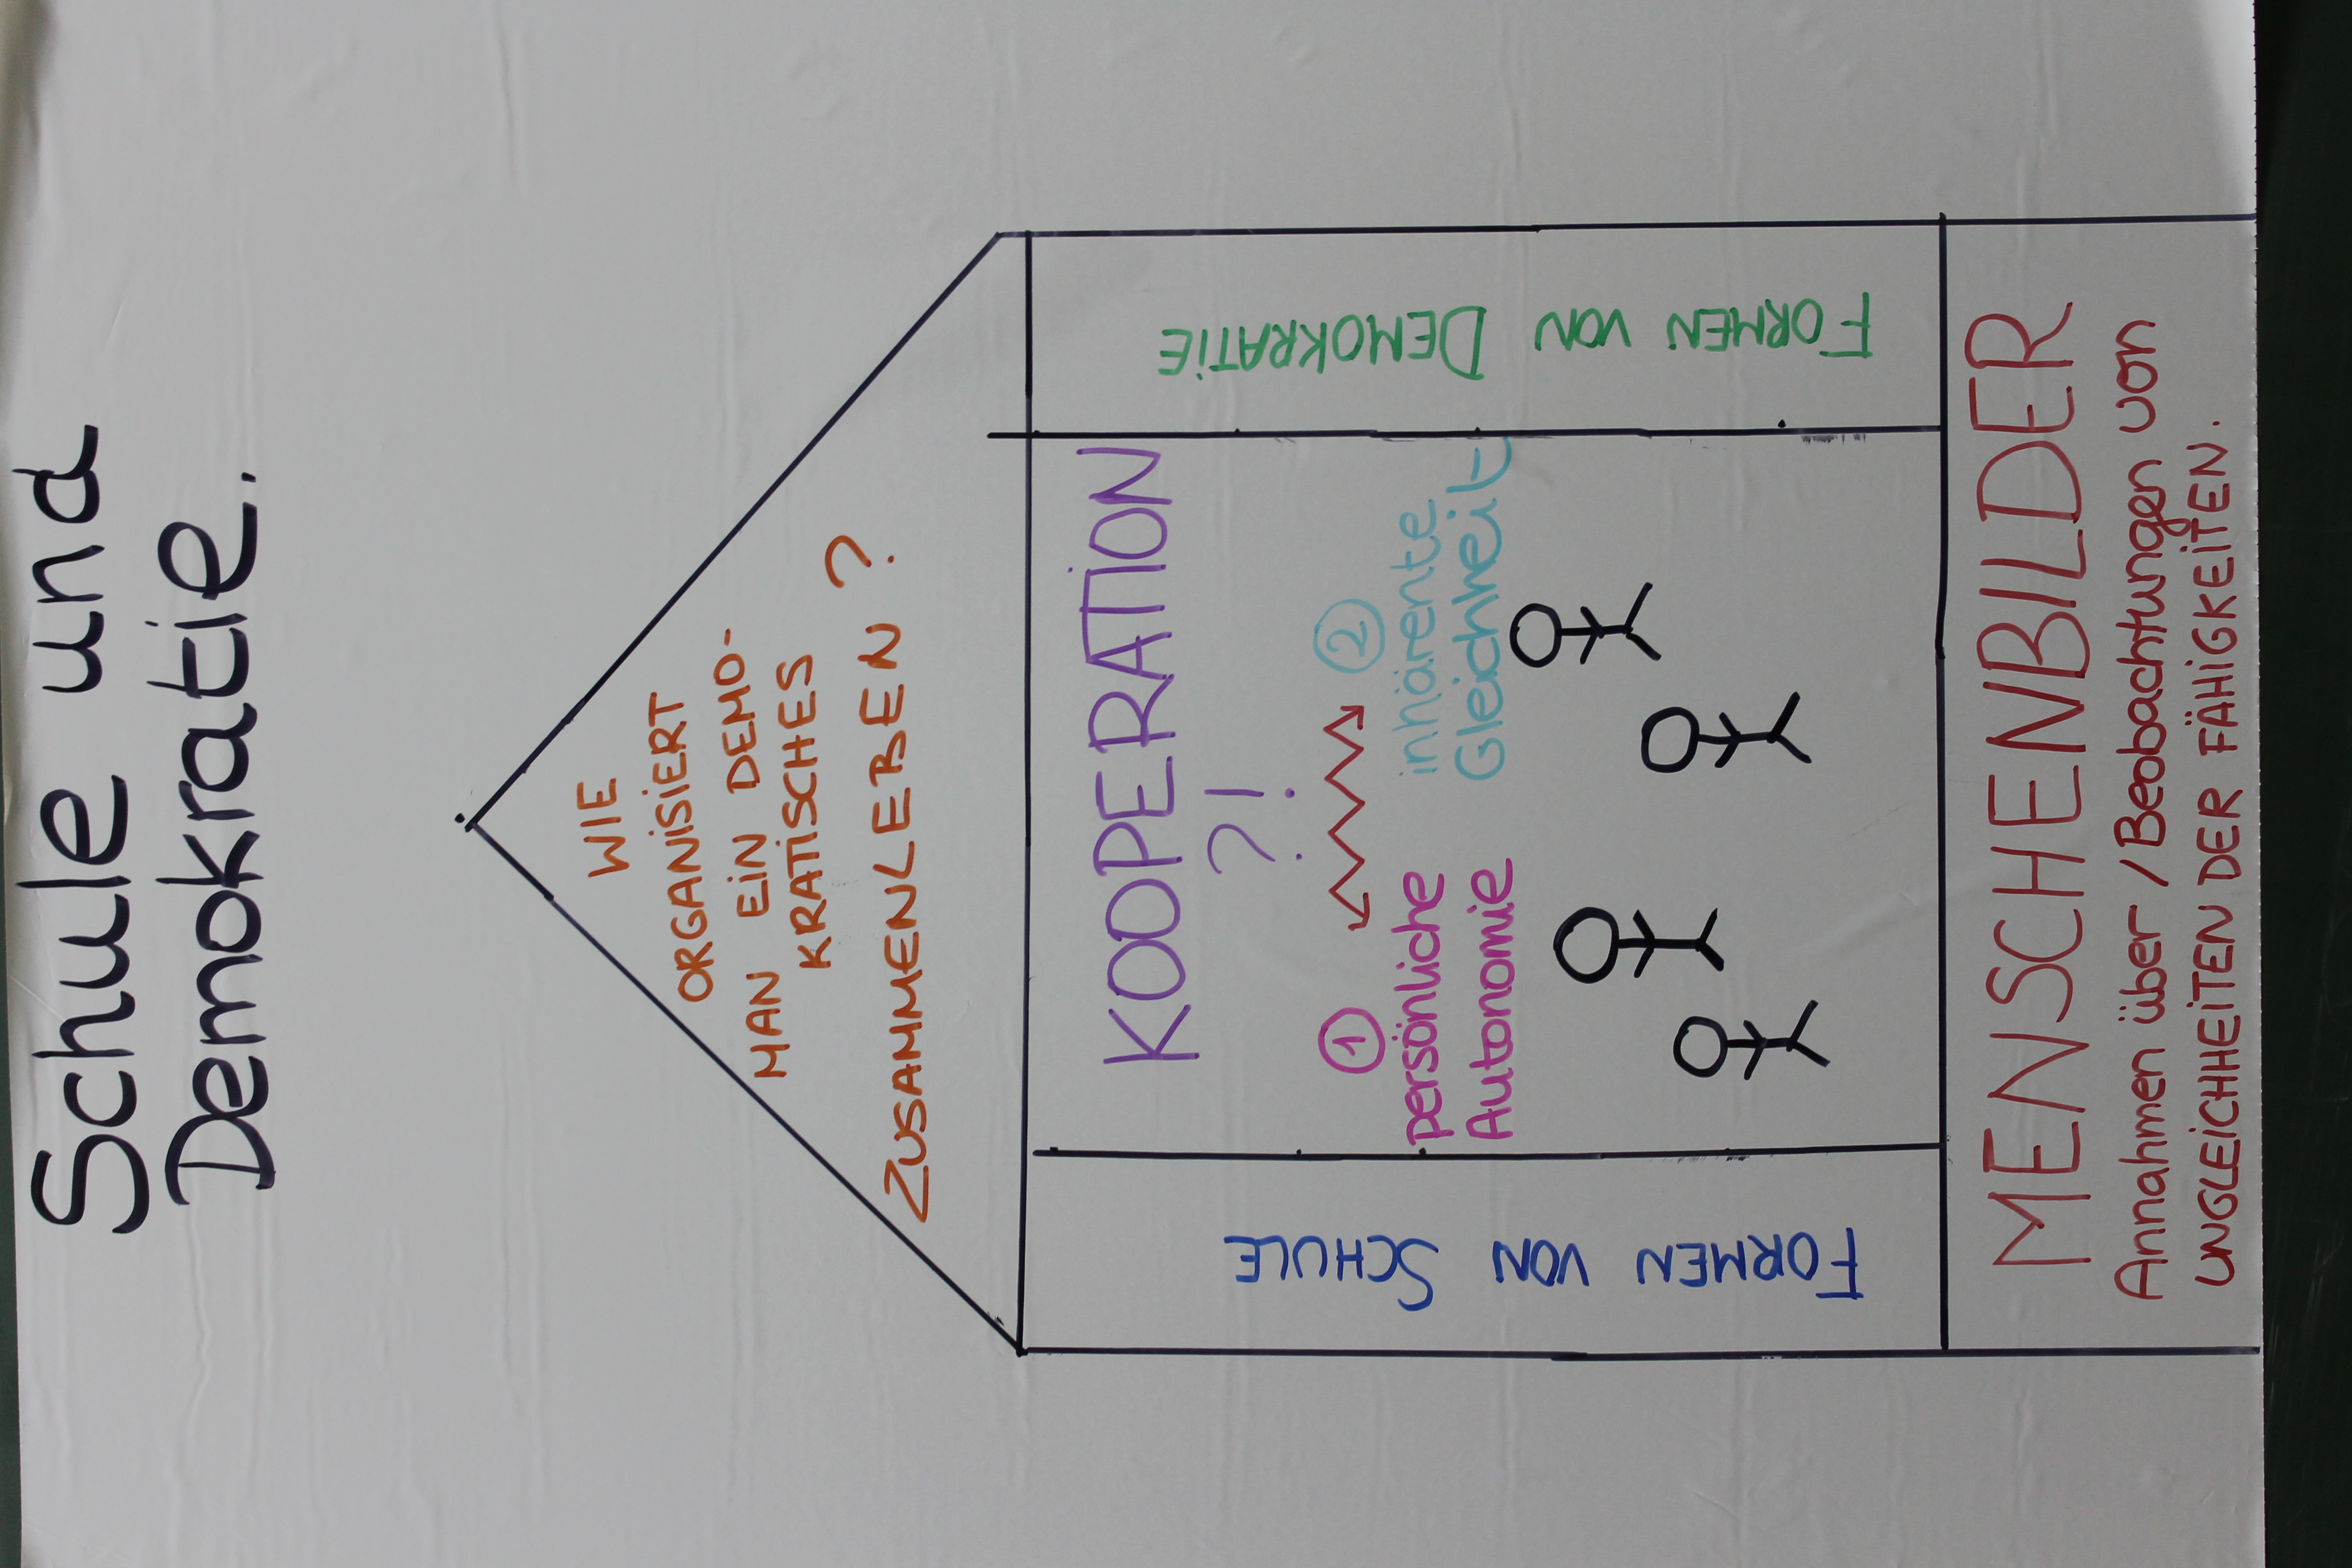 Schule und
Demokratie.
WIE
ORGANISIERT
MAN EIN DEMO-
KRATISCHES
ZUSAMMENLEBEN ?
FORMEN VON SCHULE
KOOPERATION
?!
1
persönliche
Autonomie
2
inhärente
Gleichheit
FORMEN VON DEMOKRATIE
MENSCHENBILDER
Annahmen über / Beobachtungen von
UNGLEICHHEITEN DER FÄHIGKEITEN.